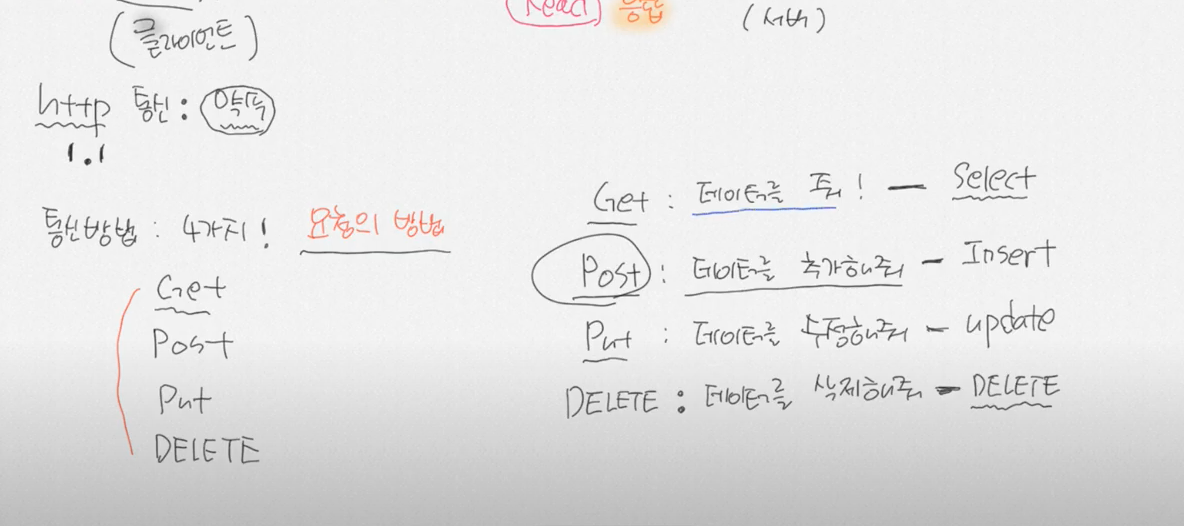 (클라이언트)
React 응답
(서버)
http 통신 : 약속
1.1
통신방법 : 4가지! 요청의 방법
Get
Post
Put
DELETE
Get : 데이터를 줘! - Select
Post : 데이터를 추가해줘 - Insert
Put : 데이터를 수정해줘 - update
DELETE : 데이터를 삭제해줘 - DELETE